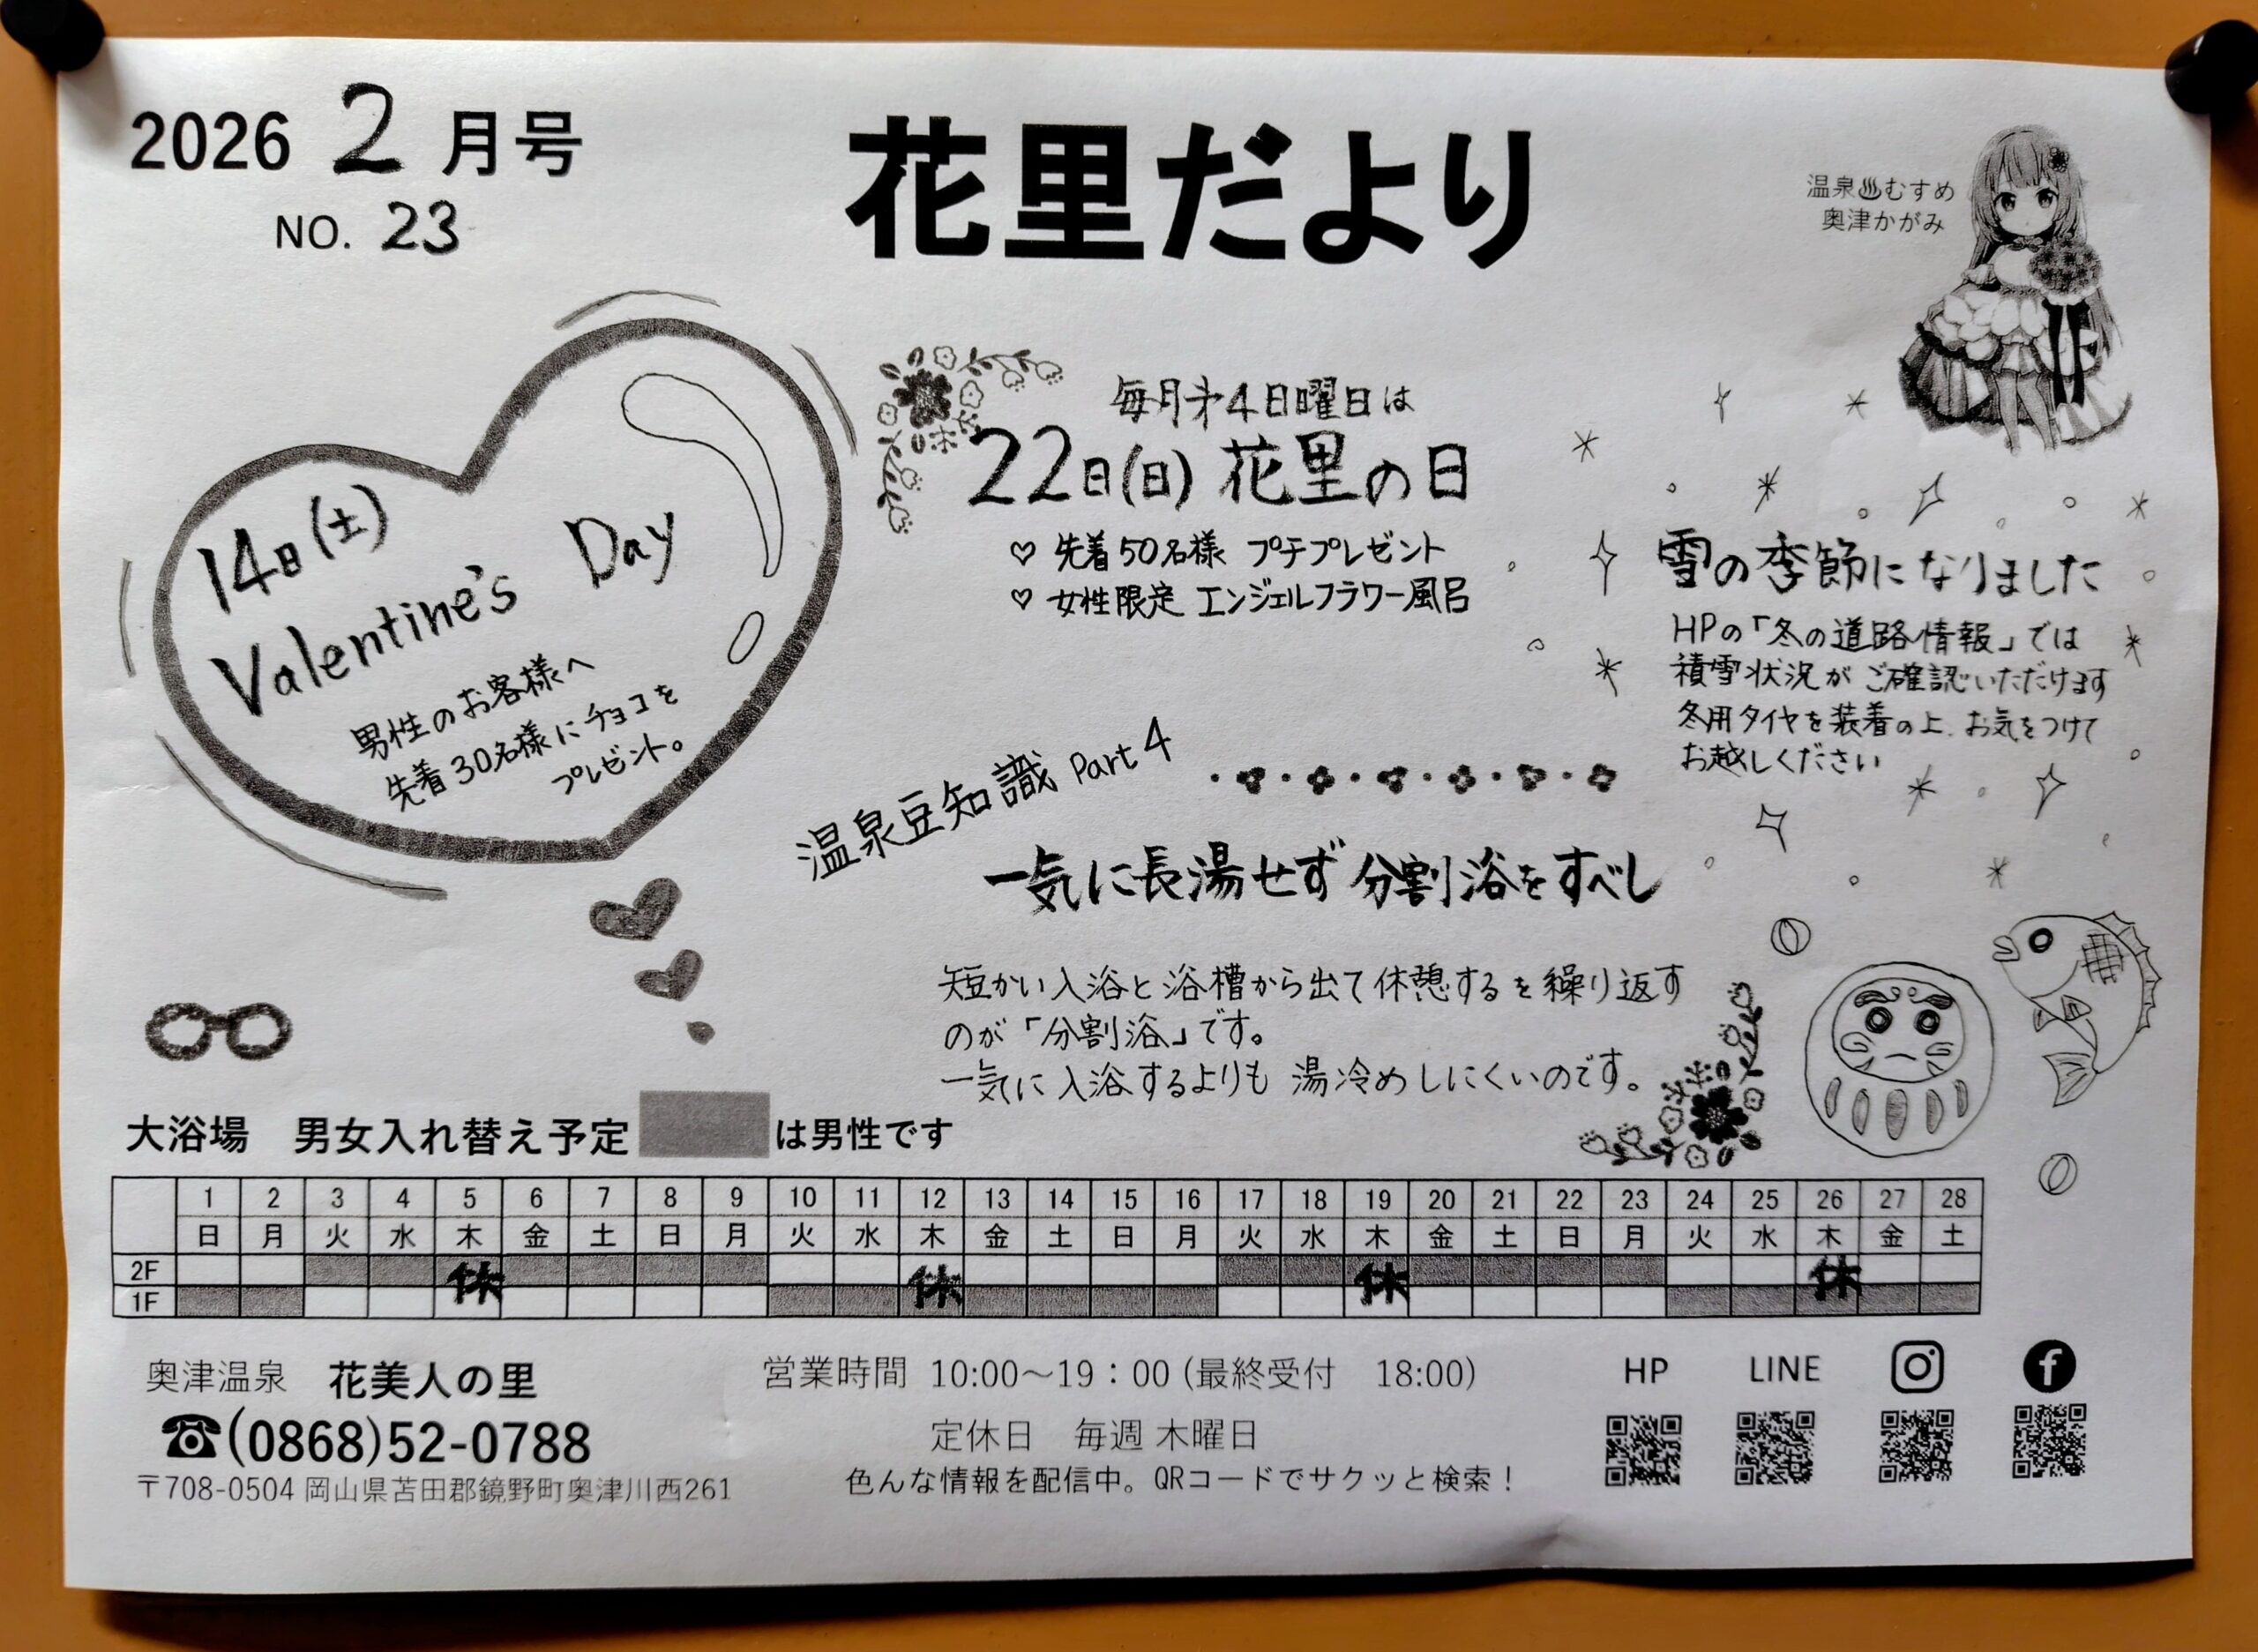 2026 2 月号
NO. 23
花里だより
温泉♨むすめ
奥津かがみ
14日(土)
Valentine's Day
男性のお客様へ
先着30名様にチョコを
プレゼント。
毎月第4日曜日は
22日(日) 花里の日
♡ 先着50名様 プチプレゼント
♡ 女性限定 エンジェルフラワー風呂
雪の季節になりました
HPの「冬の道路情報」では
積雪状況がご確認いただけます
冬用タイヤを装着の上、お気をつけて
お越しください
温泉豆知識 Part 4
一気に長湯せず分割浴をすべし
短かい入浴と浴槽から出て休憩するを繰り返す
のが「分割浴」です。
一気に入浴するよりも 湯冷めしにくいのです。
大浴場 男女入れ替え予定 は男性です
1 2 3 4 5 6 7 8 9 10 11 12 13 14 15 16 17 18 19 20 21 22 23 24 25 26 27 28
日 月 火 水 木 金 土 日 月 火 水 木 金 土 日 月 火 水 木 金 土 日 月 火 水 木 金 土
2F 休 休 休 休
1F
奥津温泉 花美人の里
☎(0868)52-0788
〒708-0504 岡山県苫田郡鏡野町奥津川西261
営業時間 10:00～19：00 (最終受付 18:00)
定休日 毎週 木曜日
色んな情報を配信中。QRコードでサクッと検索！
HP LINE